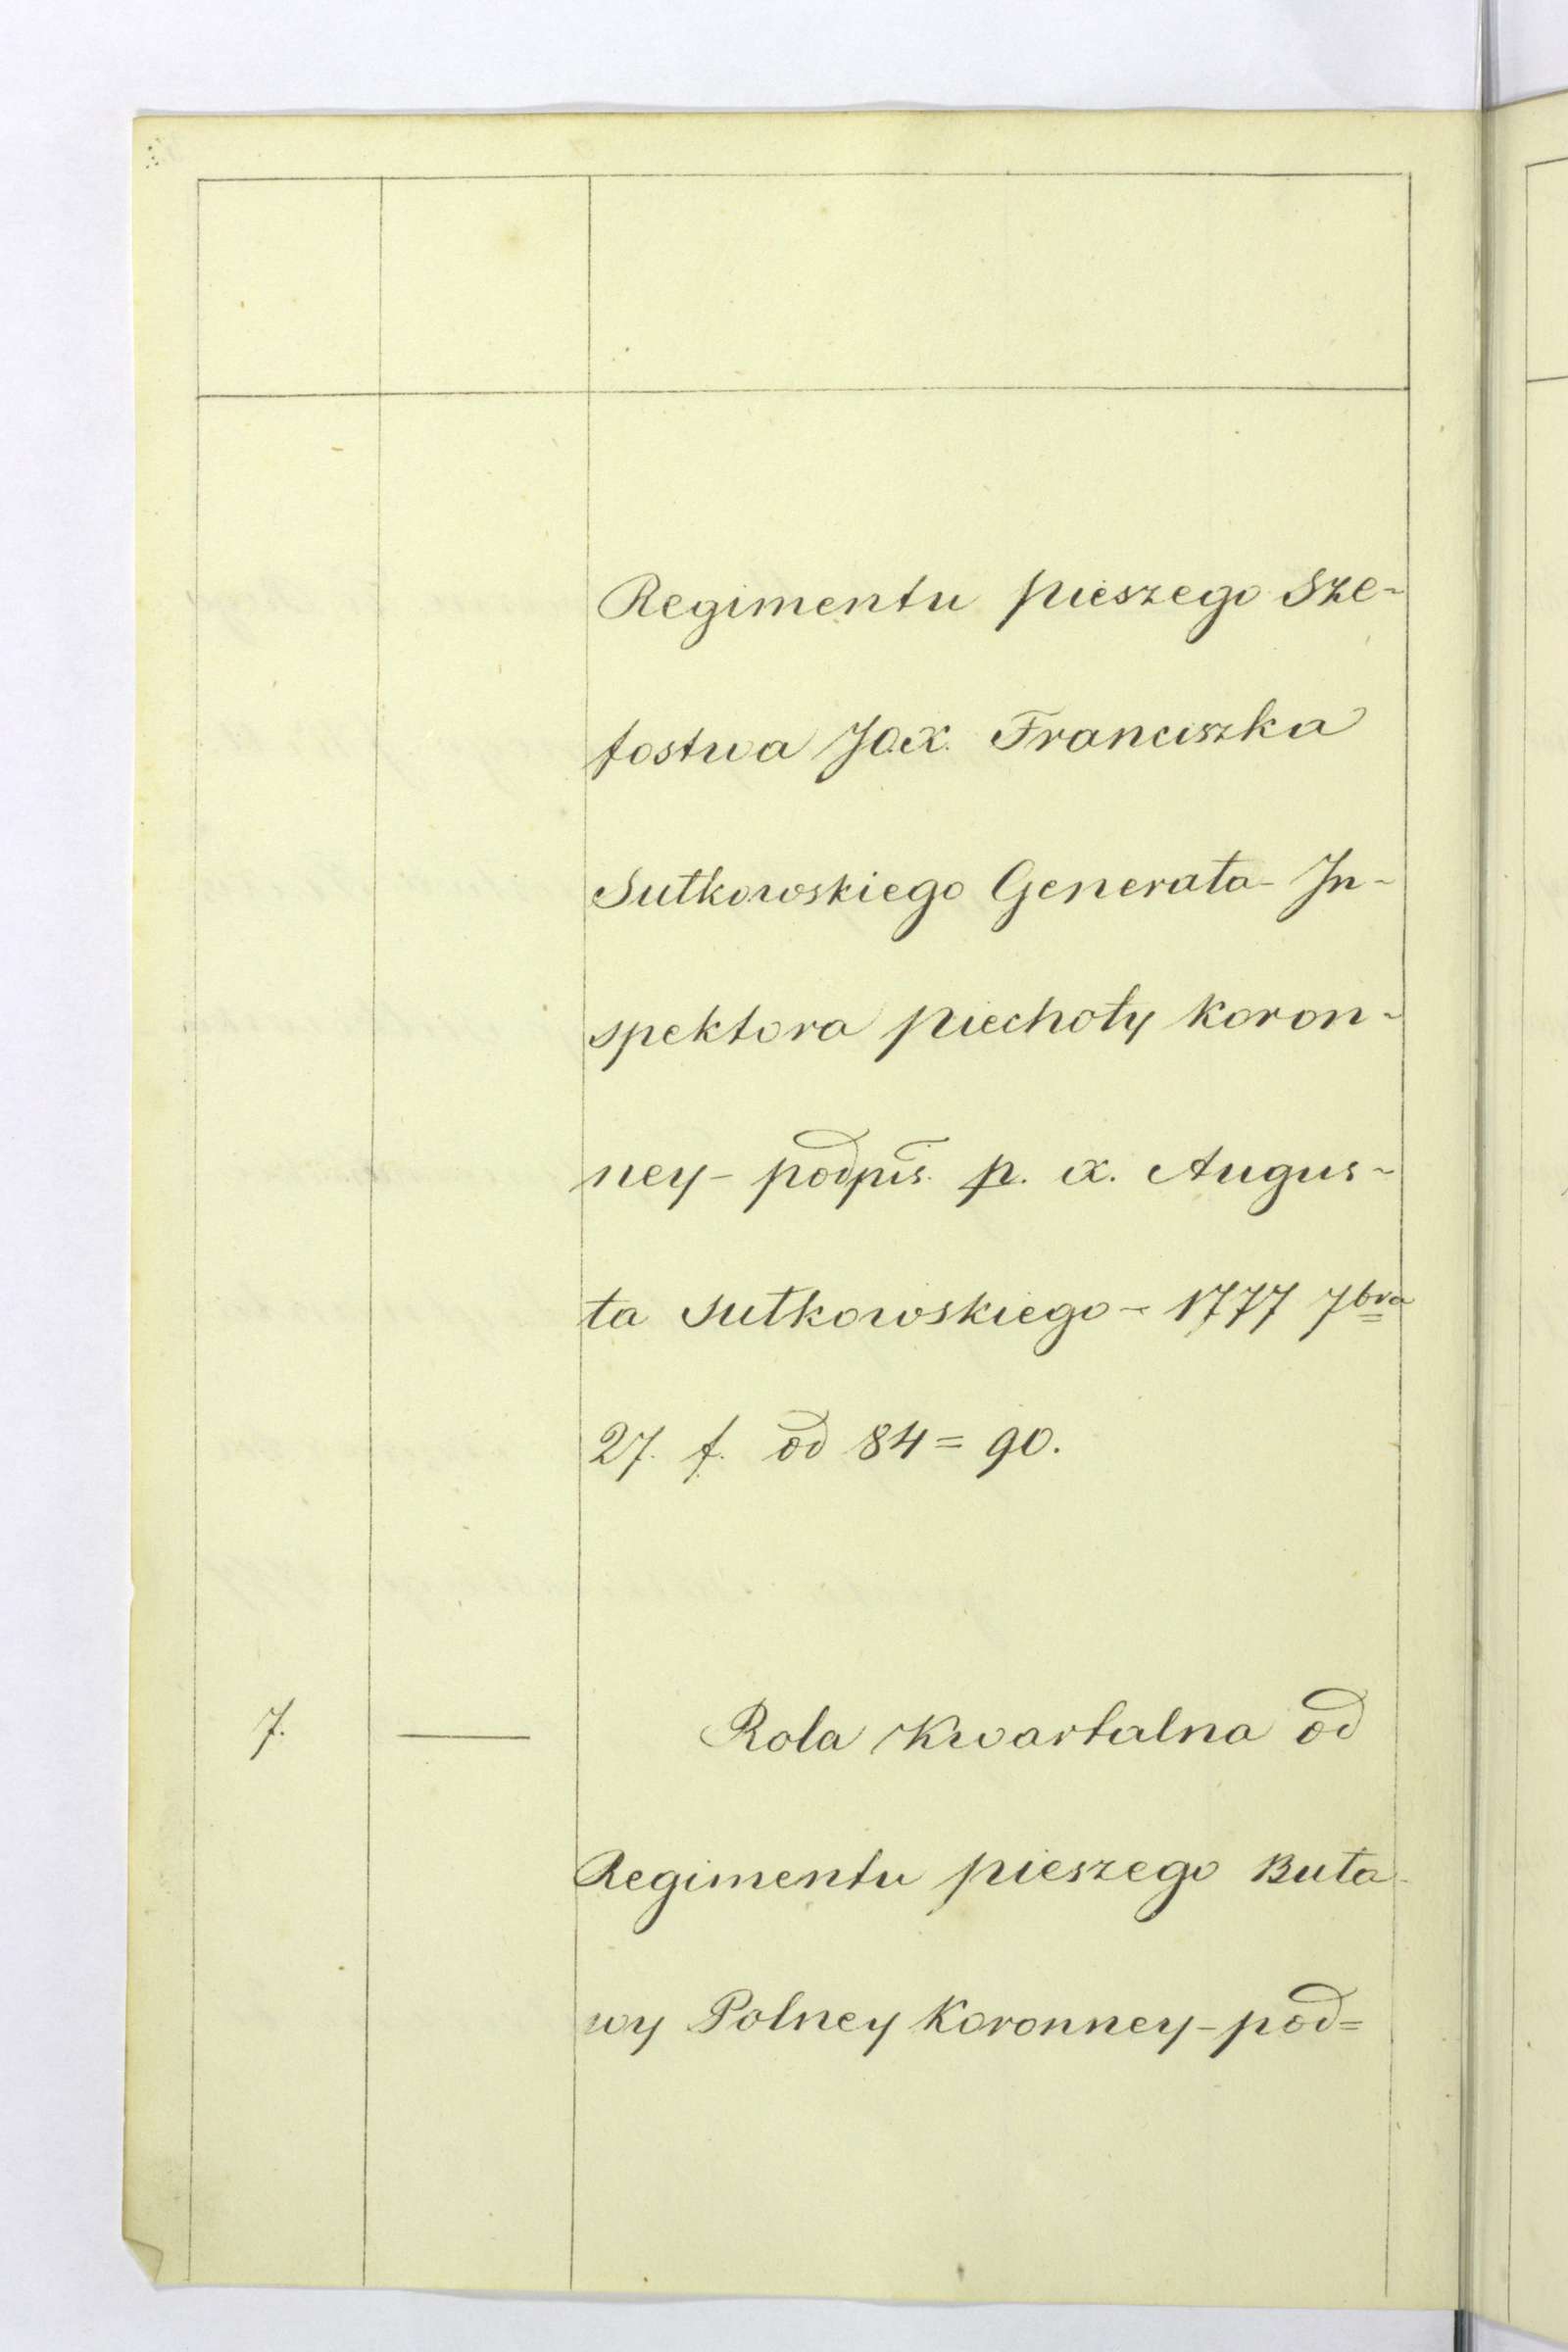 Regimentu pieszego Sze-
fostwa JOX. Franciszka
Sułkowskiego Generała- In-
spektora piechoty koron-
ney- podpis. p. X. Augus-
ta Sułkowskiego- 1777 7bra
27. f. od 84= 90.
7. — Rola Kwartalna od
Regimentu pieszego Buła-
wy Polney Koronney- pod=